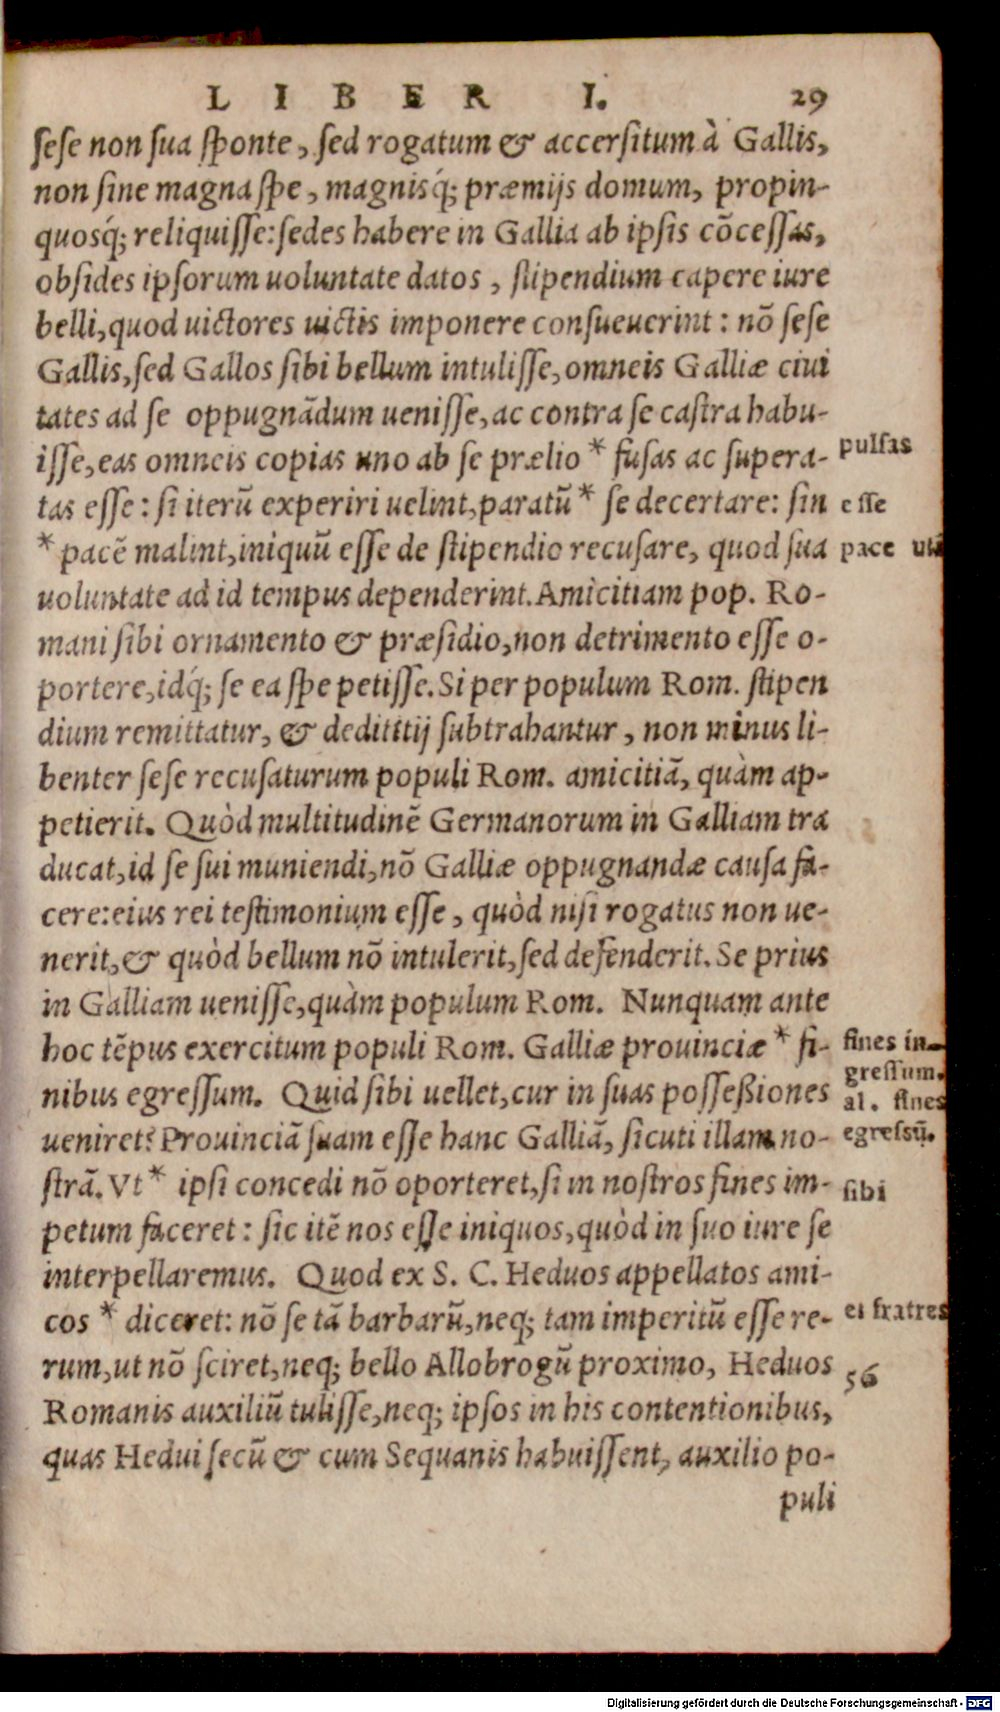 LIBER I. 29
ſeſe non ſua ſponte, ſed rogatum & accerſitum à Gallis,
non ſine magna ſpe, magnisq́; præmijs domum, propin-
quosq́; reliquiſſe: ſedes habere in Gallia ab ipſis cõceſſas,
obſides ipſorum uoluntate datos, ſtipendium capere iure
belli, quod uictores uictis imponere conſueuerint: nõ ſeſe
Gallis, ſed Gallos ſibi bellum intuliſſe, omneis Galliæ ciui
tates ad ſe oppugnãdum ueniſſe, ac contra ſe caſtra habu-
iſſe, eas omneis copias uno ab ſe prælio * fuſas ac ſupera-
pulſas
tas eſſe: ſi iterũ experiri uelint, paratũ * ſe decertare: ſin
eſſe
* pacẽ malint, iniquũ eſſe de ſtipendio recuſare, quod ſua
pace
uoluntate ad id tempus dependerint. Amicitiam pop. Ro-
mani ſibi ornamento & præſidio, non detrimento eſſe o-
portere, idq́; ſe ea ſpe petiſſe. Si per populum Rom. ſtipen
dium remittatur, & dedititij ſubtrahantur, non minus li-
benter ſeſe recuſaturum populi Rom. amicitiã, quàm ap-
petierit. Quòd multitudinẽ Germanorum in Galliam tra
ducat, id ſe ſui muniendi, nõ Galliæ oppugnandæ cauſa fa-
cere: eius rei teſtimonium eſſe, quòd niſi rogatus non ue-
nerit, & quòd bellum nõ intulerit, ſed defenderit. Se prius
in Galliam ueniſſe, quàm populum Rom. Nunquam ante
hoc tẽpus exercitum populi Rom. Galliæ prouinciæ * fi-
fines in-
greſſum.
nibus egreſſum. Quid ſibi uellet, cur in ſuas poſſeßiones
al. fines
ueniret? Prouinciã ſuam eſſe hanc Galliã, ſicuti illam no-
egreſsũ.
ſtrã. Vt * ipſi concedi nõ oporteret, ſi in noſtros fines im-
ſibi
petum faceret: ſic itẽ nos eſſe iniquos, quòd in ſuo iure ſe
interpellaremus. Quod ex S. C. Heduos appellatos ami-
cos * diceret: nõ ſe tã barbarũ, neq; tam imperitũ eſſe re-
et fratres
rum, ut nõ ſciret, neq; bello Allobrogũ proximo, Heduos
56
Romanis auxiliũ tuliſſe, neq; ipſos in his contentionibus,
quas Hedui ſecũ & cum Sequanis habuiſſent, auxilio po-
puli
Digitalisierung gefördert durch die Deutsche Forschungsgemeinschaft - DFG